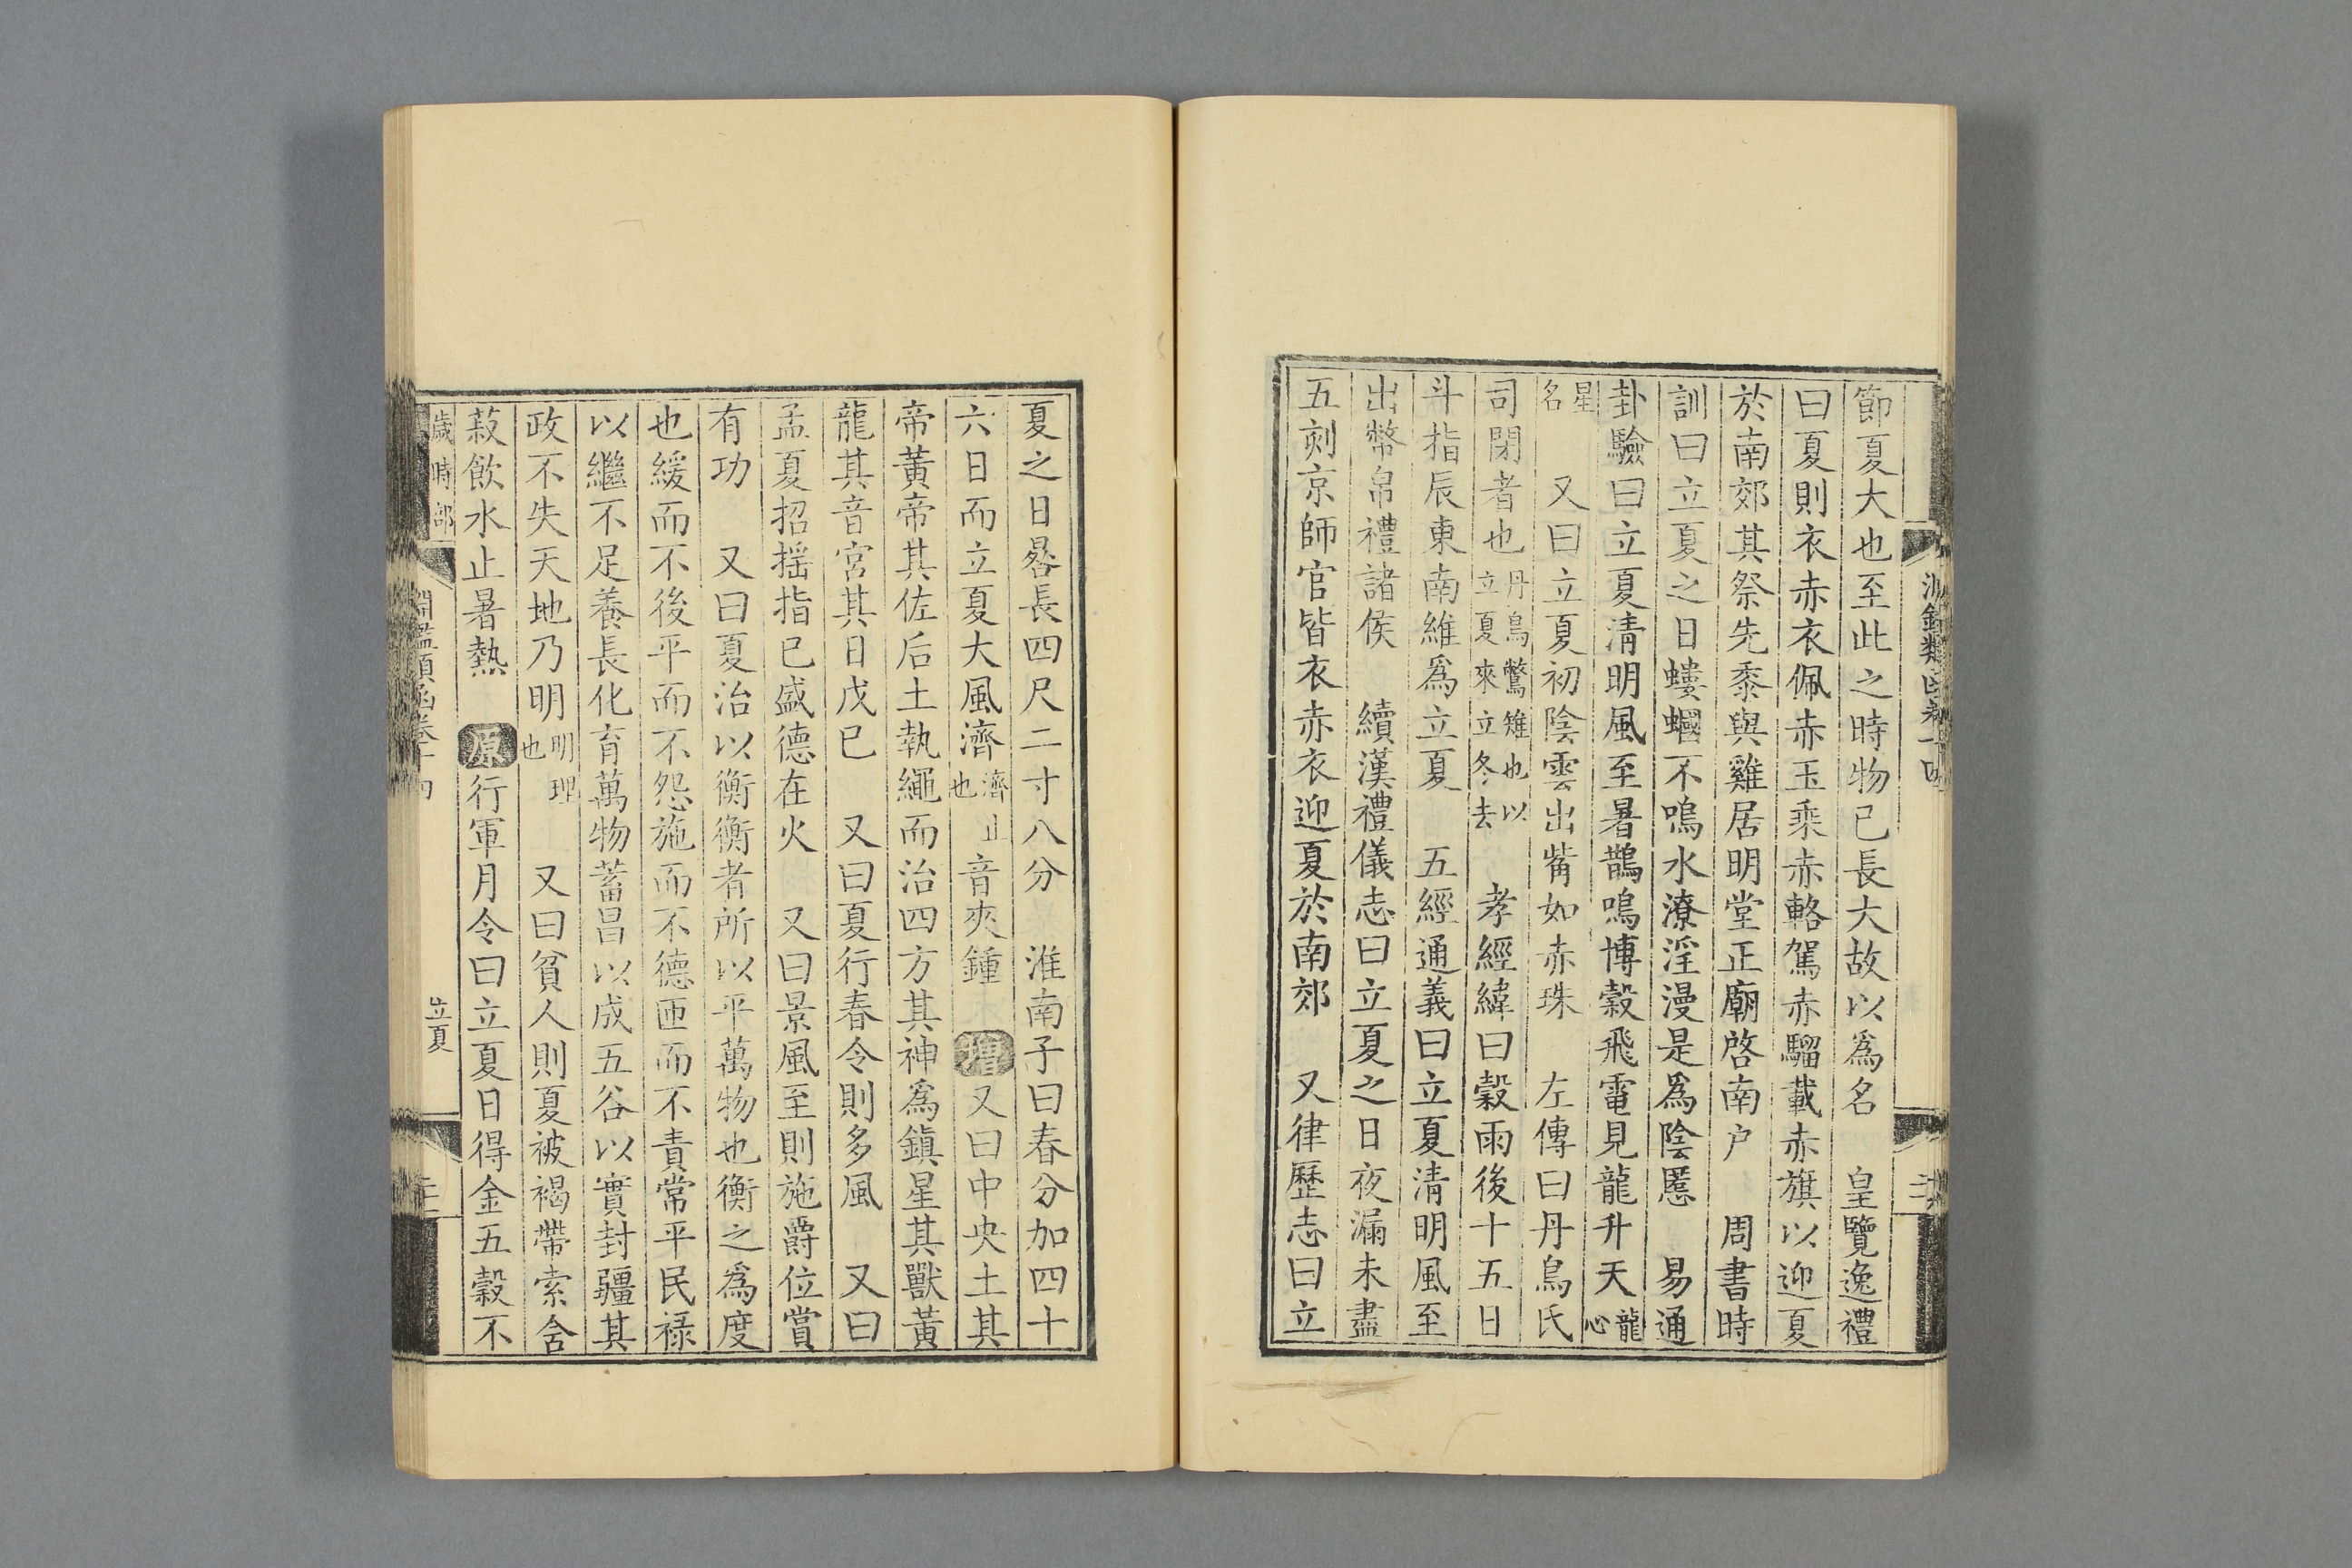 節夏大也至此之時物已長大故以爲名　皇覽逸禮
曰夏則衣赤衣佩赤玉乘赤輅駕赤騮載赤旗以迎夏
於南郊其祭先黍與雞居明堂正廟啓南户　周書時
訓曰立夏之日螻蟈不鳴水潦淫漫是爲陰慝　易通
卦驗曰立夏清明風至暑鵲鳴博穀飛電見龍升天龍心
星名　又曰立夏初陰雲出觜如赤珠　左傳曰丹鳥氏
司閉者也丹鳥鷩雉也以立夏來立冬去　孝經緯曰穀雨後十五日
斗指辰東南維爲立夏　五經通義曰立夏清明風至
出幣帛禮諸侯　續漢禮儀志曰立夏之日夜漏未盡
五刻京師官皆衣赤衣迎夏於南郊　又律歷志曰立
夏之日晷長四尺二寸八分　淮南子曰春分加四十
六日而立夏大風濟濟止也音夾鍾　增又曰中央土其
帝黃帝其佐后土執繩而治四方其神爲鎭星其獸黃
龍其音宮其日戊巳　又曰夏行春令則多風　又曰
孟夏招搖指巳盛德在火　又曰景風至則施爵位賞
有功　又曰夏治以衡衡者所以平萬物也衡之爲度
也緩而不後平而不怨施而不德匝而不責常平民祿
以繼不足養長化育萬物蓄昌以成五谷以實封疆其
政不失天地乃明明理也　又曰貧人則夏被褐帶索含
菽飲水止暑熱　原行軍月令曰立夏日得金五穀不
歲時部
淵鑑類函卷十四
立夏